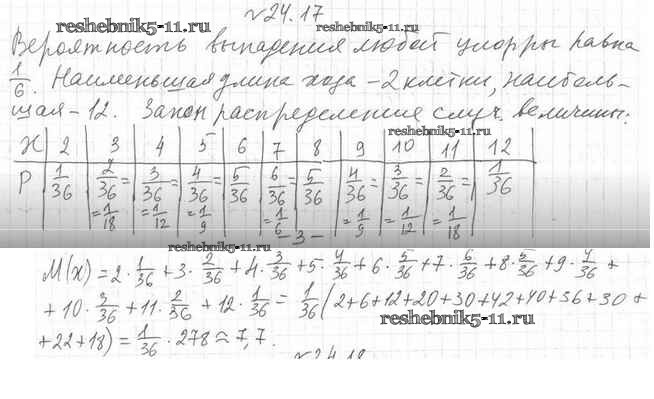 reshebnik5-11.ru
№24.17
reshebnik5-11.ru
Вероятность выпадения любой цифры равна
1/6. Наименьшая длина хода – 2 клетки, наиболь-
шая – 12. Закон распределения случ. величины:
reshebnik5-11.ru
X 2 3 4 5 6 7 8 9 10 11 12
P 1/36 2/36= 3/36= 4/36= 5/36 6/36= 5/36 4/36= 3/36= 2/36= 1/36
=1/18 =1/12 =1/9 =1/6 =1/9 =1/12 =1/18
– 3 –
reshebnik5-11.ru
M(x) = 2·1/36 + 3·2/36 + 4·3/36 + 5·4/36 + 6·5/36 + 7·6/36 + 8·5/36 + 9·4/36 +
+ 10·3/36 + 11·2/36 + 12·1/36 = 1/36 (2+6+12+20+30+42+40+36+30+
reshebnik5-11.ru
+22+18) = 1/36 · 278 ≈ 7,7.
№24.18